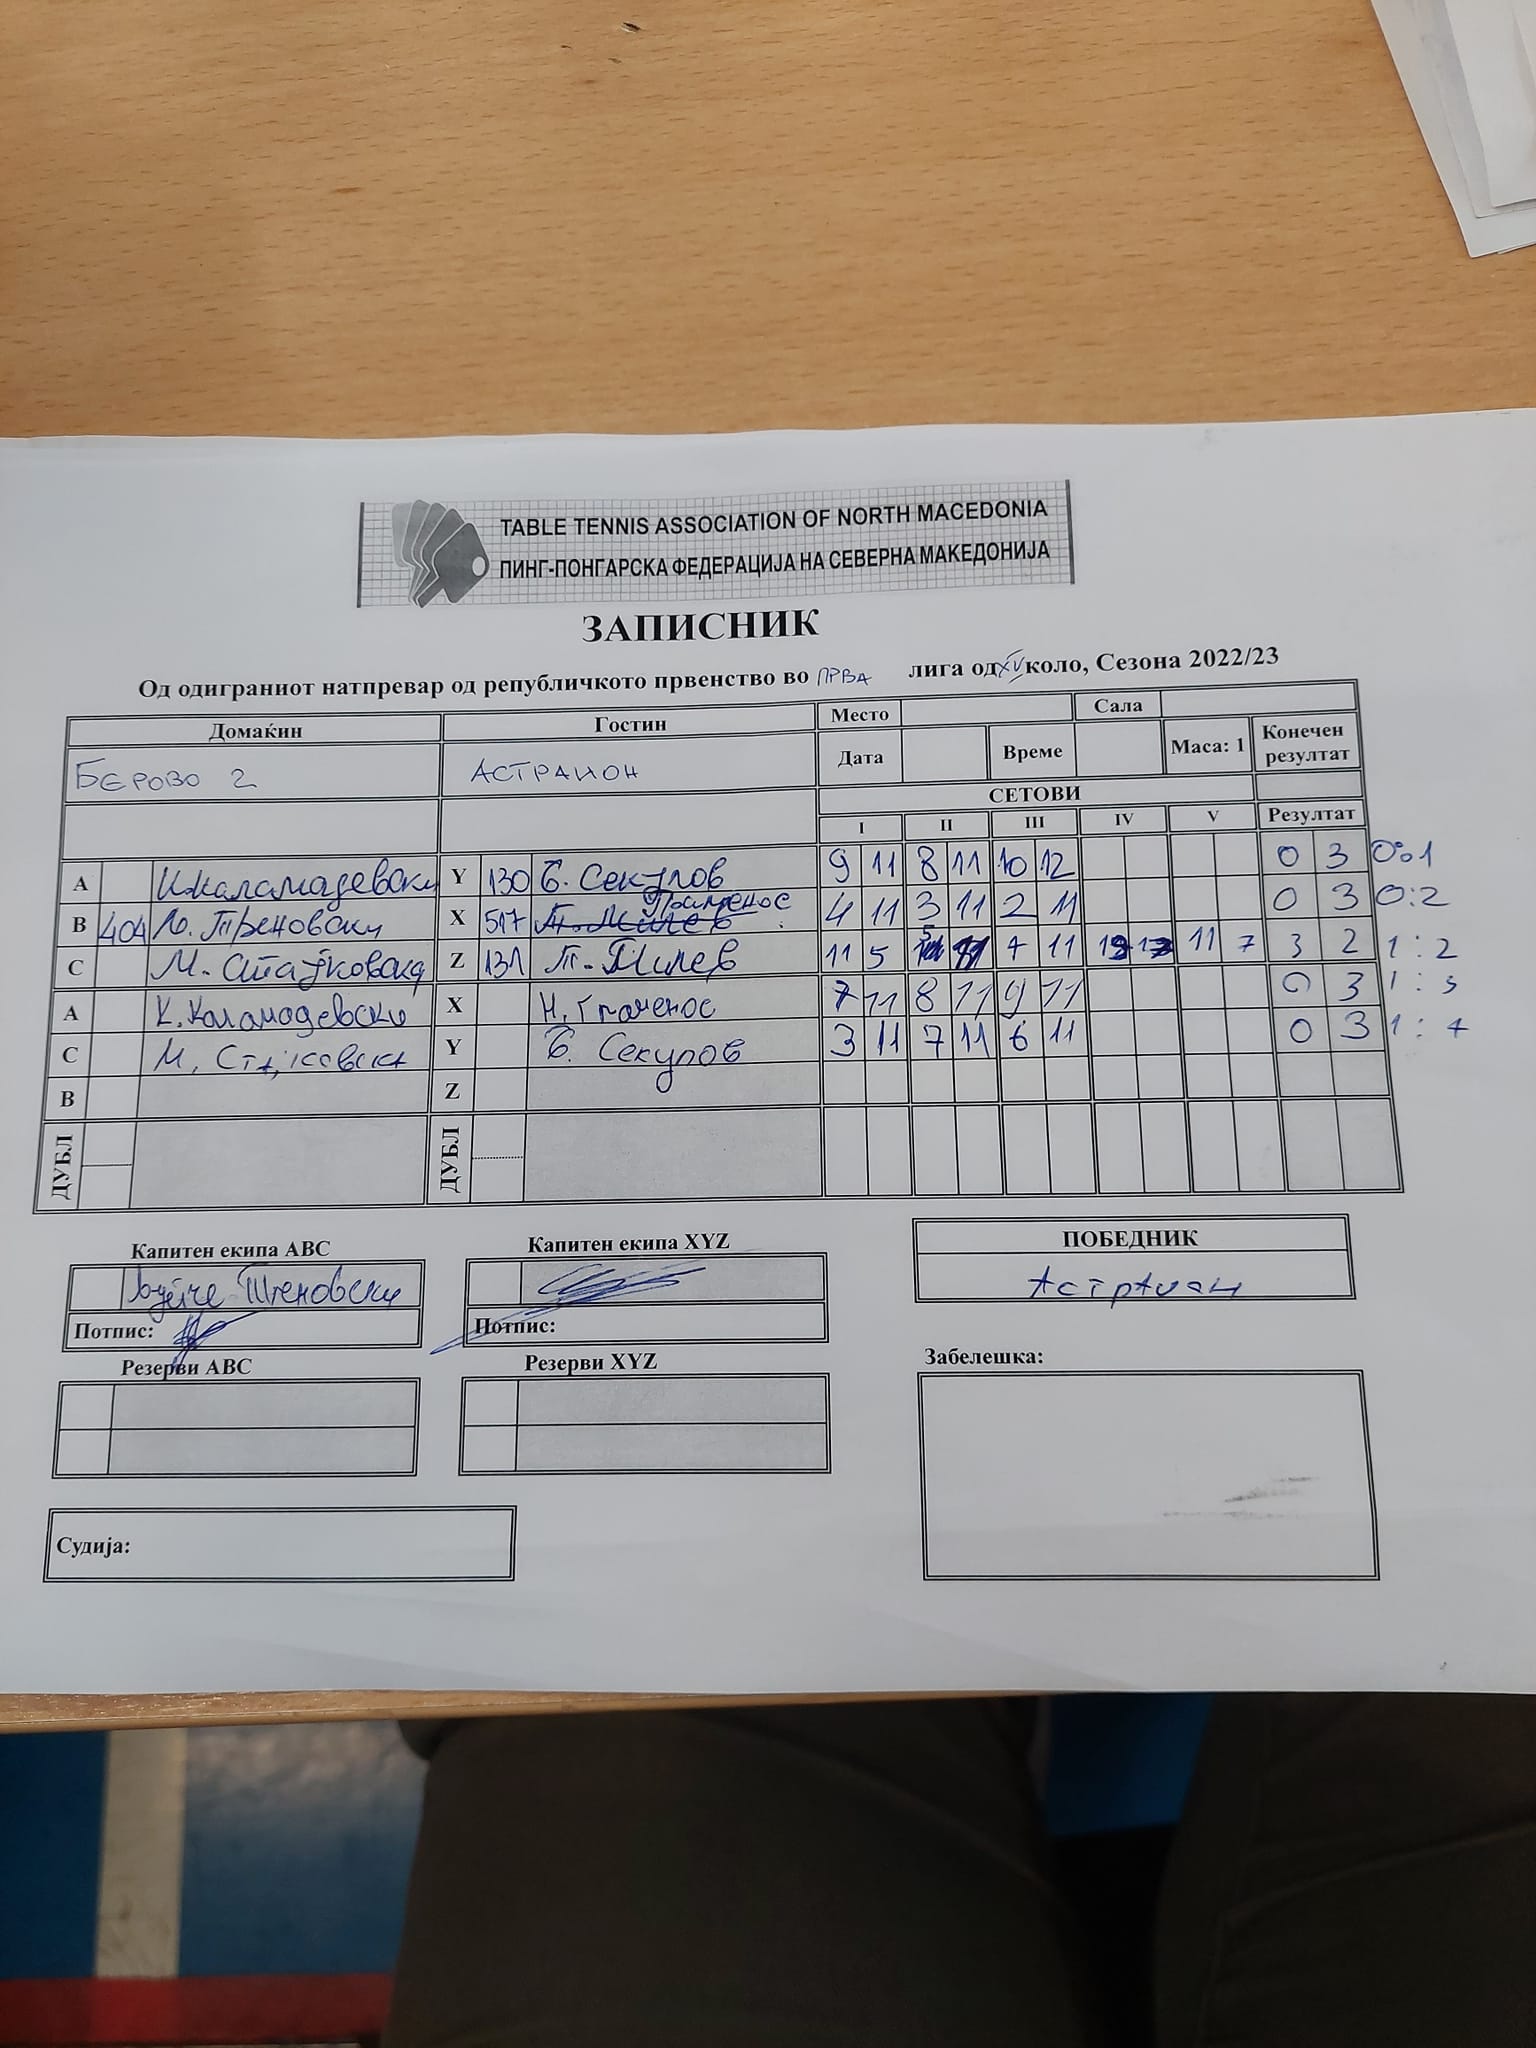 TABLE TENNIS ASSOCIATION OF NORTH MACEDONIA
ПИНГ-ПОНГАРСКА ФЕДЕРАЦИЈА НА СЕВЕРНА МАКЕДОНИЈА
ЗАПИСНИК
Од одиграниот натпревар од републичкото првенство во ПРВА лига од XV коло, Сезона 2022/23
Домаќин Гостин Место Сала
БЕРОВО 2 АСТРАИОН Дата Време Маса: 1 Конечен резултат
СЕТОВИ
I II III IV V Резултат
A К.Каламадевски Y 130 Б. Секулов 9 11 8 11 10 12 0 3 0:1
B 404 Љ. Треновски X 517 4 11 3 11 2 11 0 3 0:2
C М. Z 131 Т. Милев 11 5 5 11 4 11 11 7 3 2 1:2
A К. Каламадевски X Н. 7 11 8 11 9 11 0 3 1:3
C М. Y Б. Секулов 3 11 7 11 6 11 0 3 1:4
B Z
ДУБЛ ДУБЛ
Капитен екипа ABC Капитен екипа XYZ ПОБЕДНИК
Треновски Астраион
Потпис: Потпис:
Резерви ABC Резерви XYZ Забелешка:
Судија: